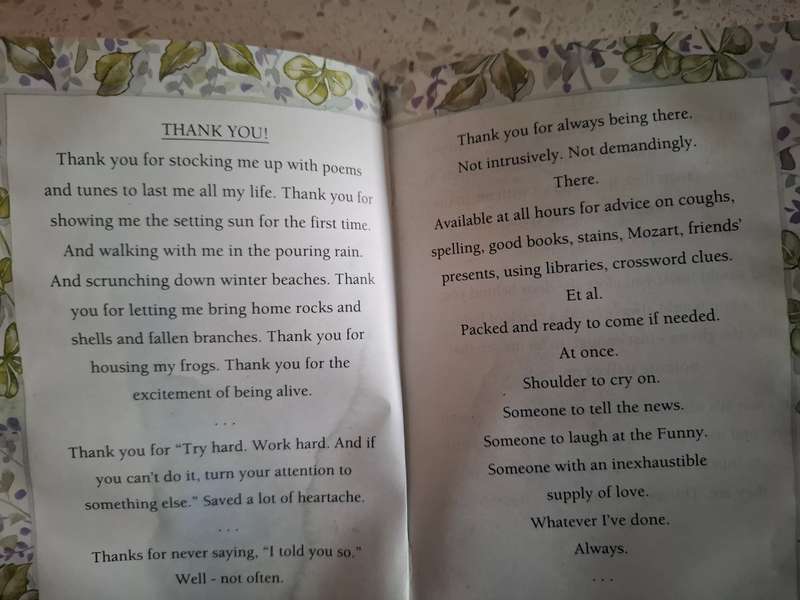 THANK YOU!
Thank you for stocking me up with poems
and tunes to last me all my life. Thank you for
showing me the setting sun for the first time.
And walking with me in the pouring rain.
And scrunching down winter beaches. Thank
you for letting me bring home rocks and
shells and fallen branches. Thank you for
housing my frogs. Thank you for the
excitement of being alive.
. . .
Thank you for “Try hard. Work hard. And if
you can’t do it, turn your attention to
something else.” Saved a lot of heartache.
. . .
Thanks for never saying, “I told you so.”
Well - not often.
Thank you for always being there.
Not intrusively. Not demandingly.
There.
Available at all hours for advice on coughs,
spelling, good books, stains, Mozart, friends’
presents, using libraries, crossword clues.
Et al.
Packed and ready to come if needed.
At once.
Shoulder to cry on.
Someone to tell the news.
Someone to laugh at the Funny.
Someone with an inexhaustible
supply of love.
Whatever I’ve done.
Always.
. . .